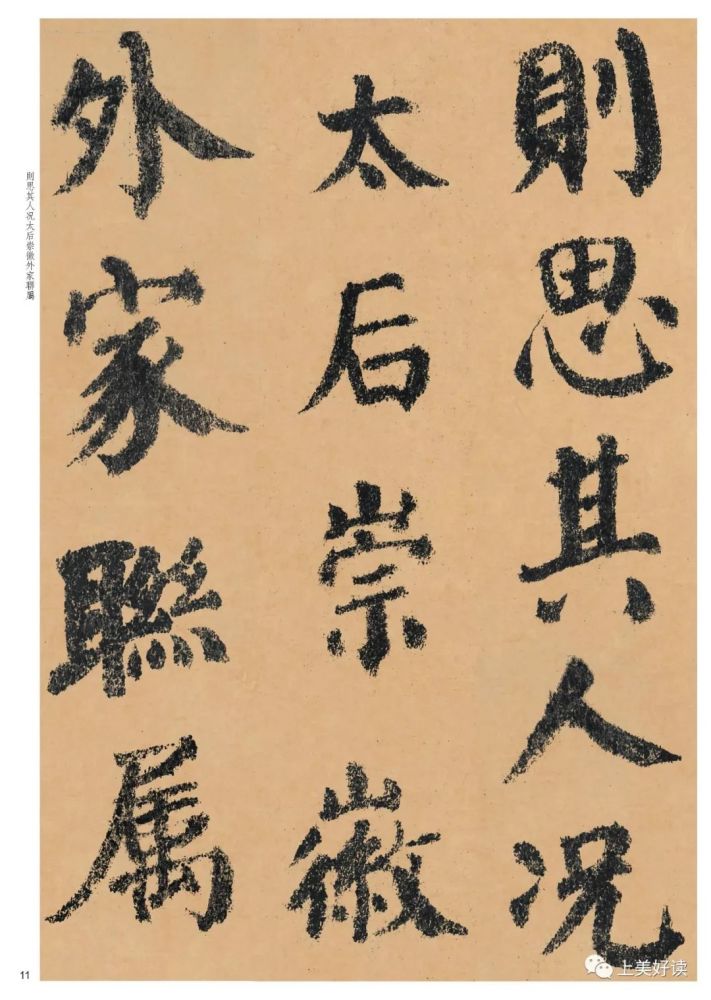 則思其人况
太后崇徽
外家聯属
則思其人况太后崇徽外家聯屬
11
上美好读